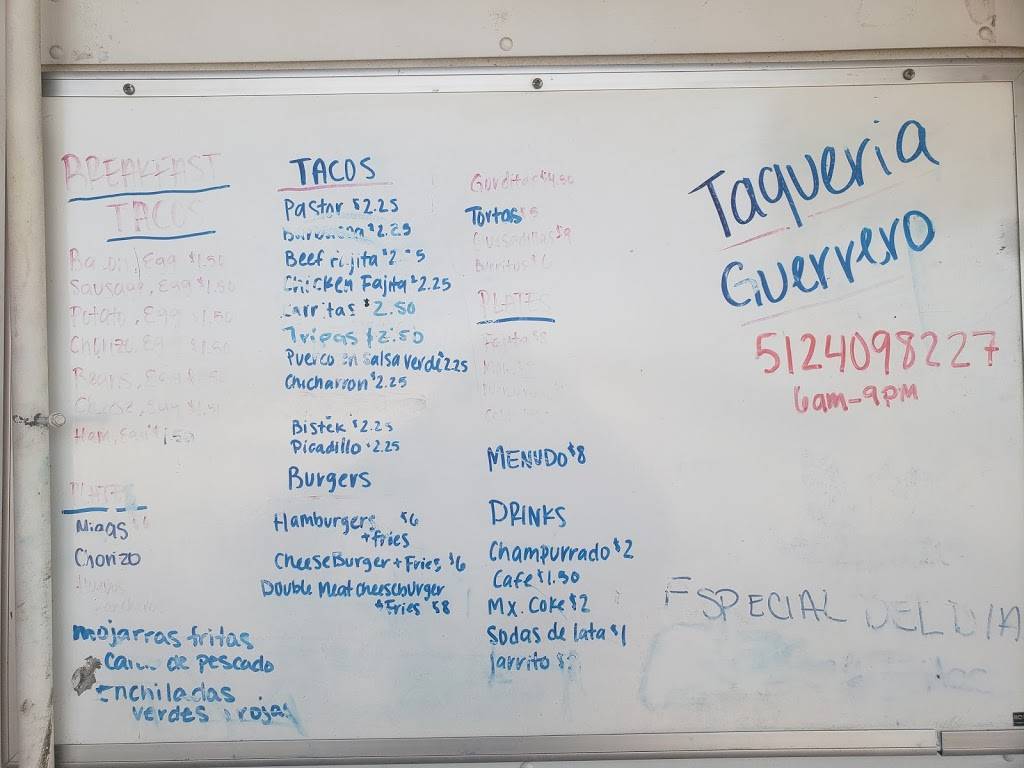 BREAKFAST
TACOS
Bacon, Egg $1.50
Sausage, Egg $1.50
Potato, Egg $1.50
Chorizo, Egg $1.50
Beans, Egg $1.50
Cheese, Egg $1.50
Ham, Egg $1.50
PLATES
Migas $6
Chorizo
mojarras fritas
Caldo de pescado
Enchiladas
verdes rojas
TACOS
Pastor $2.25
Barbacoa $2.25
Beef Fajita $2.25
Chicken Fajita $2.25
Carritas $2.50
Tripas $2.50
Puerco en salsa verde 2.25
Chicharron $2.25
Bistek $2.25
Picadillo 2.25
Burgers
Hamburgers $6
+fries
CheeseBurger + Fries $6
Double Meat cheeseburger
+Fries $8
Gorditas $4.50
Tortas $5
Quesadillas $9
Burritos $6
PLATES
Fajita $8
MENUDO $8
DRINKS
Champurrado $2
Cafe $1.50
Mx. Coke $2
Sodas de lata $1
Jarrito $2
Taqueria
Guerrero
5124098227
6am-9pm
ESPECIAL DEL DIA